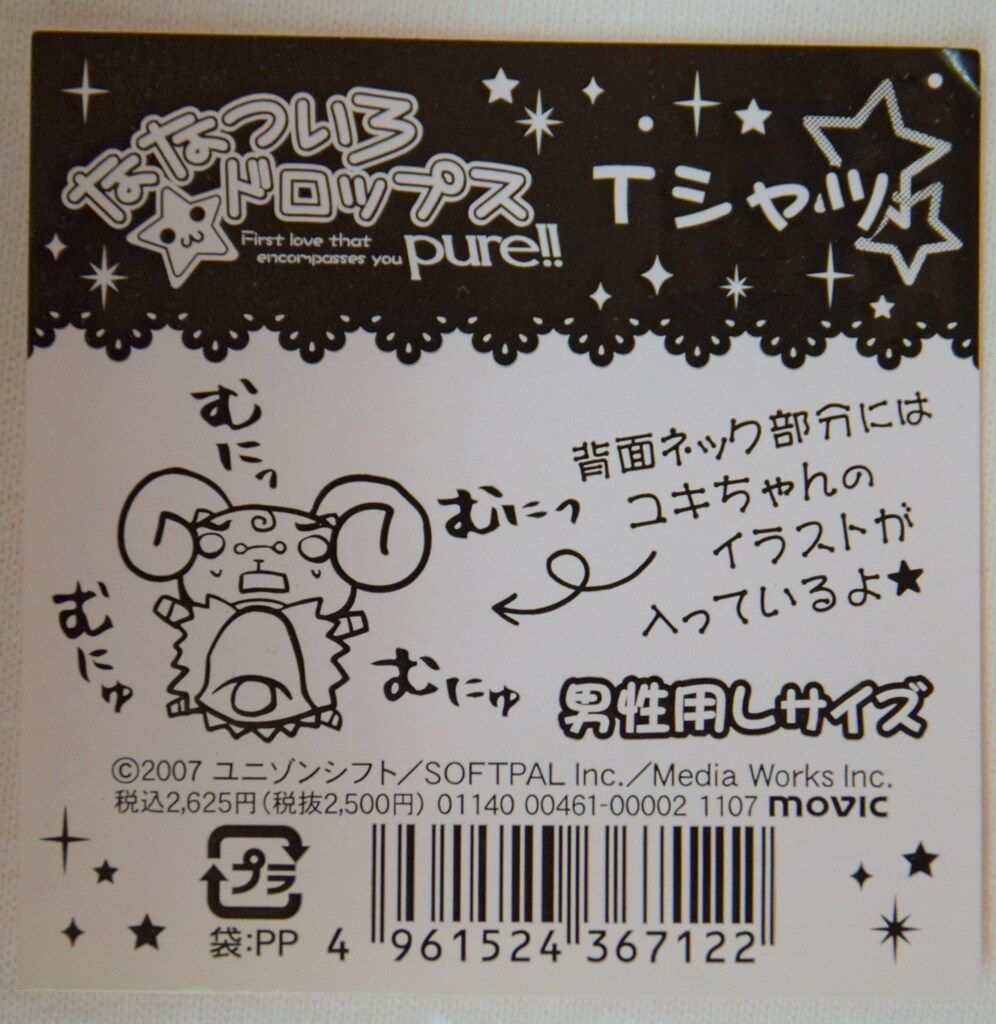 ななついろ
ドロップス
Tシャツ
First love that
encompasses you
pure!!
むにっ
むにっ
むにゅ
むにゅ
背面ネック部分には
ユキちゃんの
イラストが
入っているよ★
男性用Lサイズ
©2007 ユニゾンシフト／SOFTPAL Inc.／Media Works Inc.
税込2,625円（税抜2,500円） 01140 00461-00002 1107 movic
プラ
袋:PP
4 961524 367122